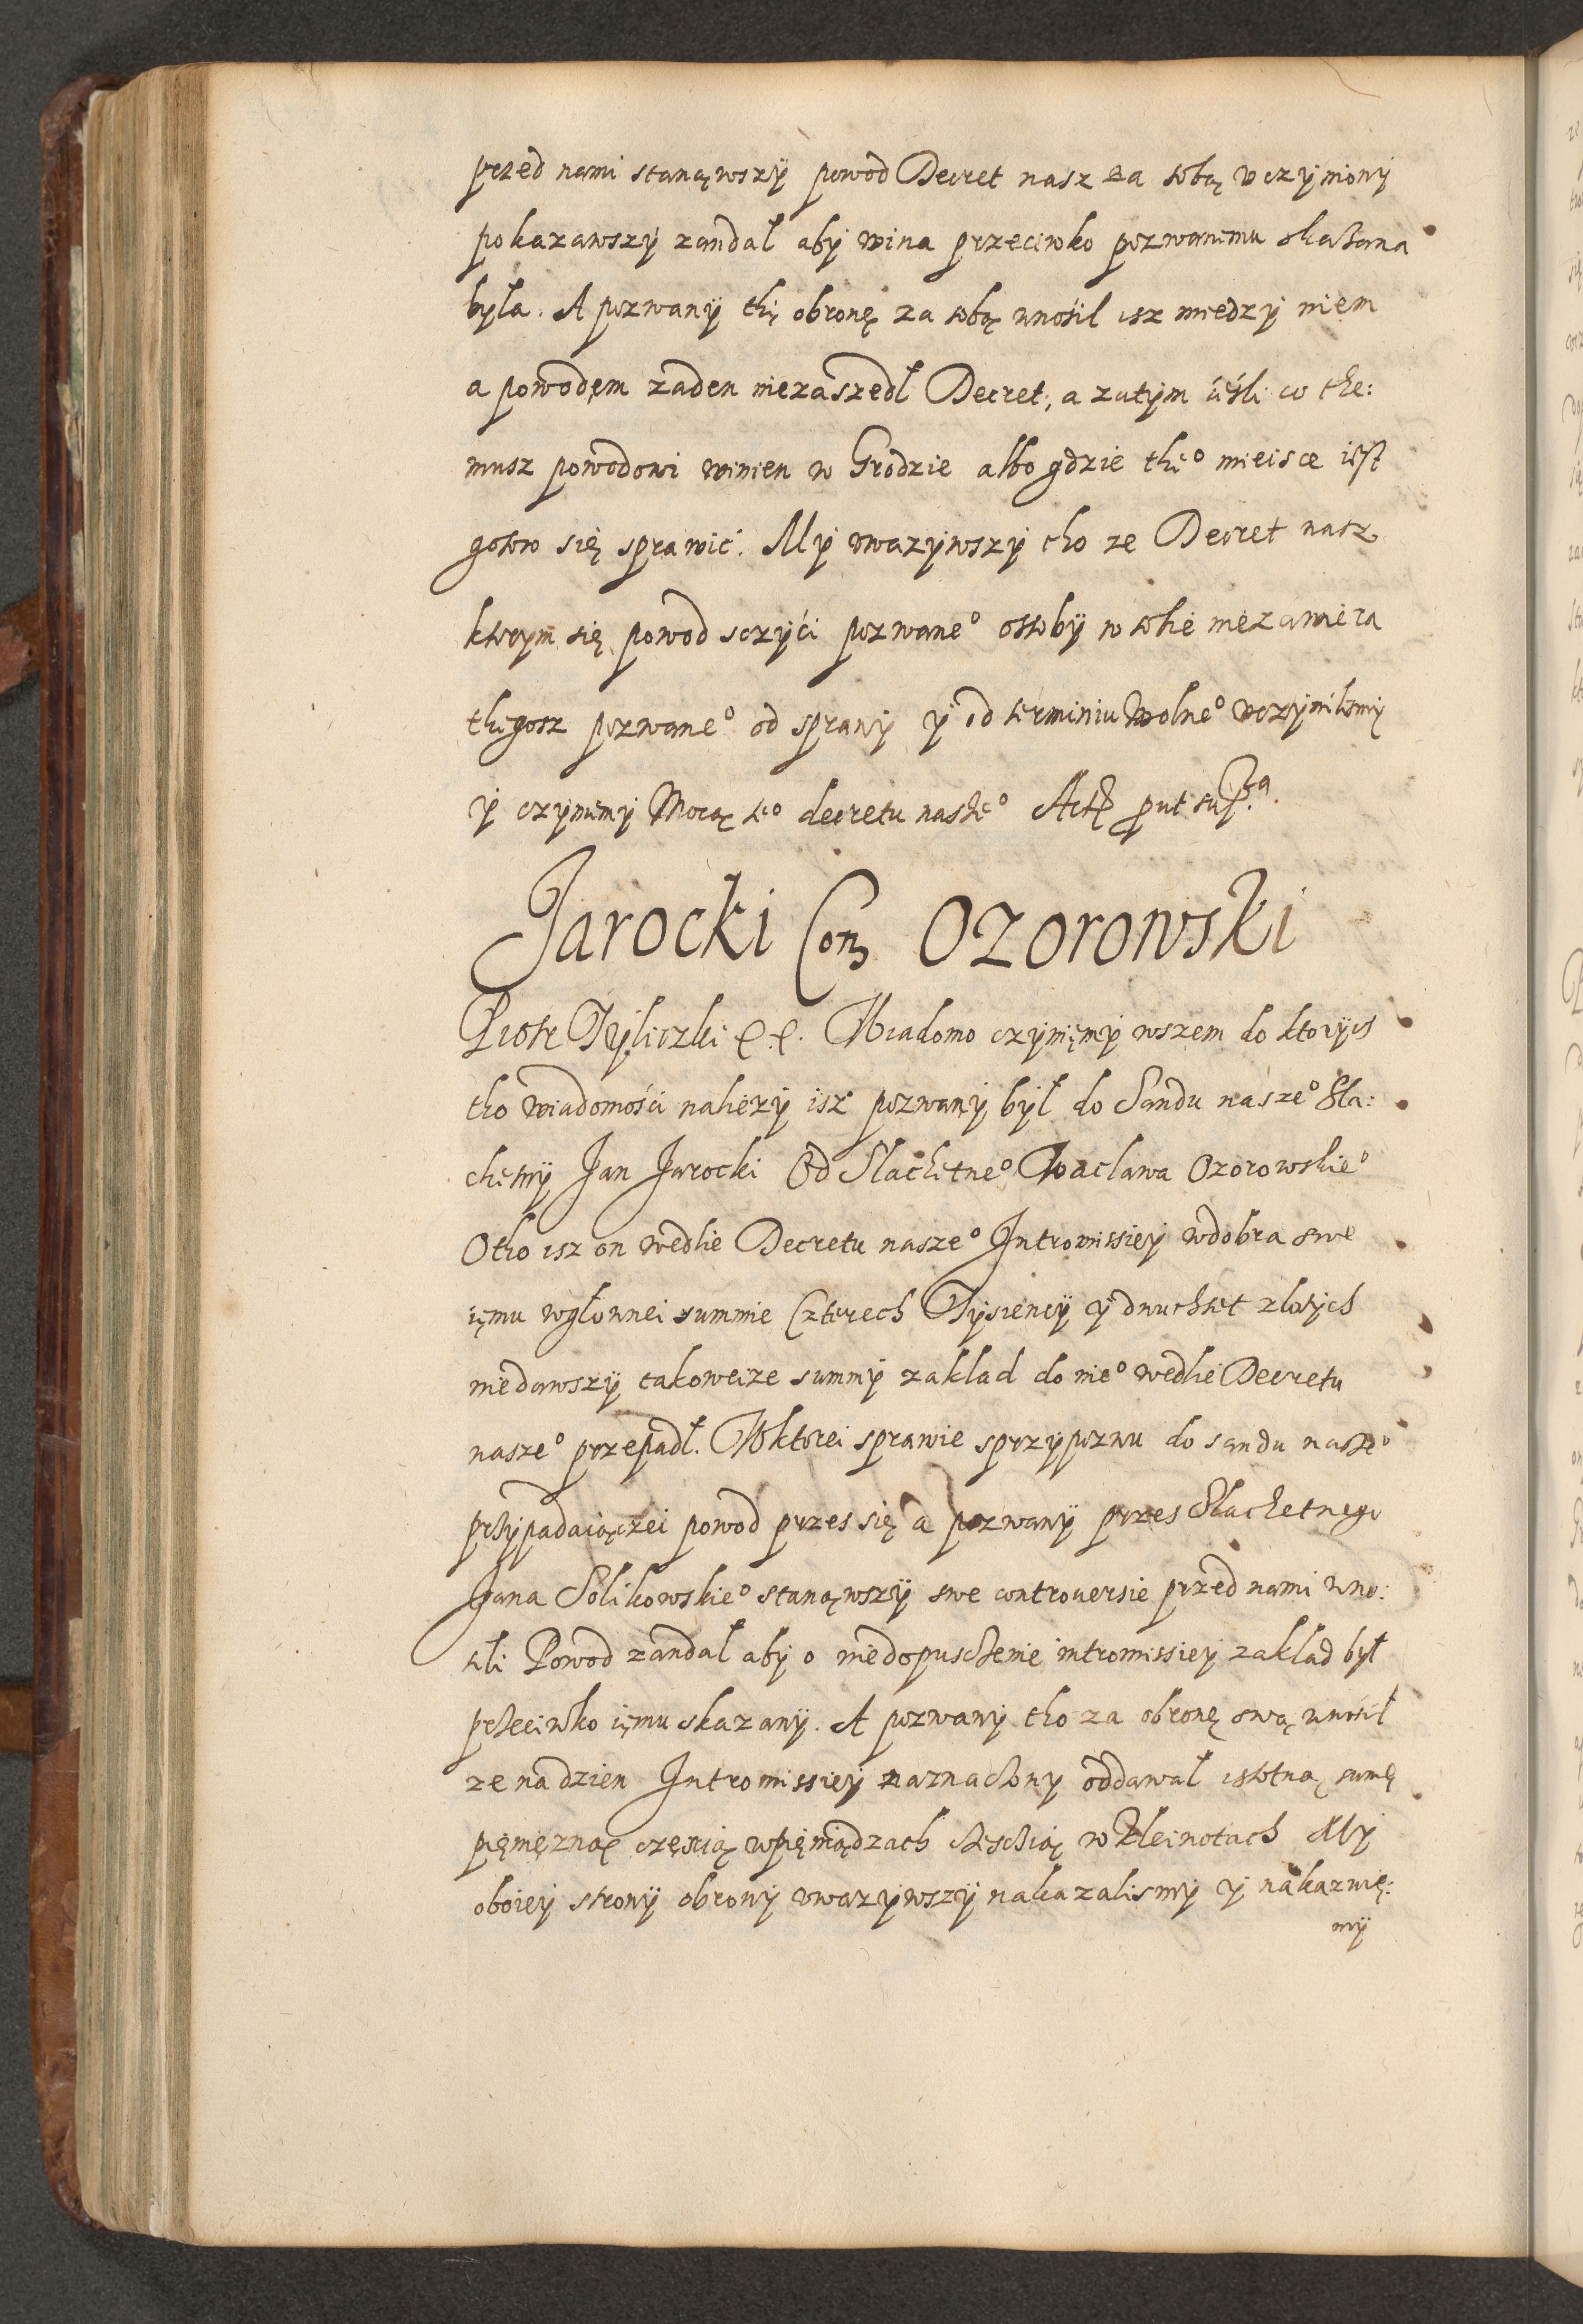 przed nami stanąwszÿ powod Decret nasz za sobą vczÿniony
pokazawszÿ zandal aby wina przeciwko pozwanemu skazana
byla. A pozwanÿ thę obronę za sobą wnosil isz miedzy niem
a powodem zaden niezaszedl Decret, a zatÿm iesli co the:
musz powodowi winien w Grodzie albo gdzie the° mieisce iest
gotow się sprawić. My vwazÿwszÿ tho ze Decret nasz
ktorym się powod sczÿci pozwane° ossobÿ w sobie niezamiera
thegosz pozwane° od sprawÿ ÿ od terminu Wolne° vczÿnilismÿ
ÿ czÿniemÿ Mocą te° decretu nasze° Act prout supra.
Jarocki Con OZorowski
Piotr Tÿliczki etc. Wiadomo czÿniemÿ wszem do ktorÿch
tho wiadomości nalezÿ isz pozwanÿ bÿl do Sandu nasze° Sla:
chetnÿ Jan Jarocki Od Slachetne° Waclawa Ozorowskie°
Otho isz on wedlie Decretu nasze° Intromissieÿ wdobra swe
iemu wglownei summie Czterech Tÿsiencÿ ÿ dwuchset zlotÿch
niedawszÿ takoweize summÿ zaklad do nie° wedlie Decretu
nasze° przepadl. Wktorei sprawie sprzÿpozwu do sandu nasze°
przÿpadaiączei powod przes się a pozwanÿ przes Slachetnego
Jana Solikowskie° stanąwszÿ swe controuersie przed nami wno:
sili Powod zandal abÿ o niedopusczenie intromissieÿ zaklad bÿl
przeciwko iemu skazanÿ. A pozwanÿ tho za obronę swą wnosil
ze na dzien Intromissieÿ naznaczony oddawal istotną sumę
pięnięzną częscią wpięniądzach częscią w Kleinotach Mÿ
oboieÿ stronÿ obronÿ vwazÿwszÿ nakazalismÿ ÿ nakazuię:
mÿ